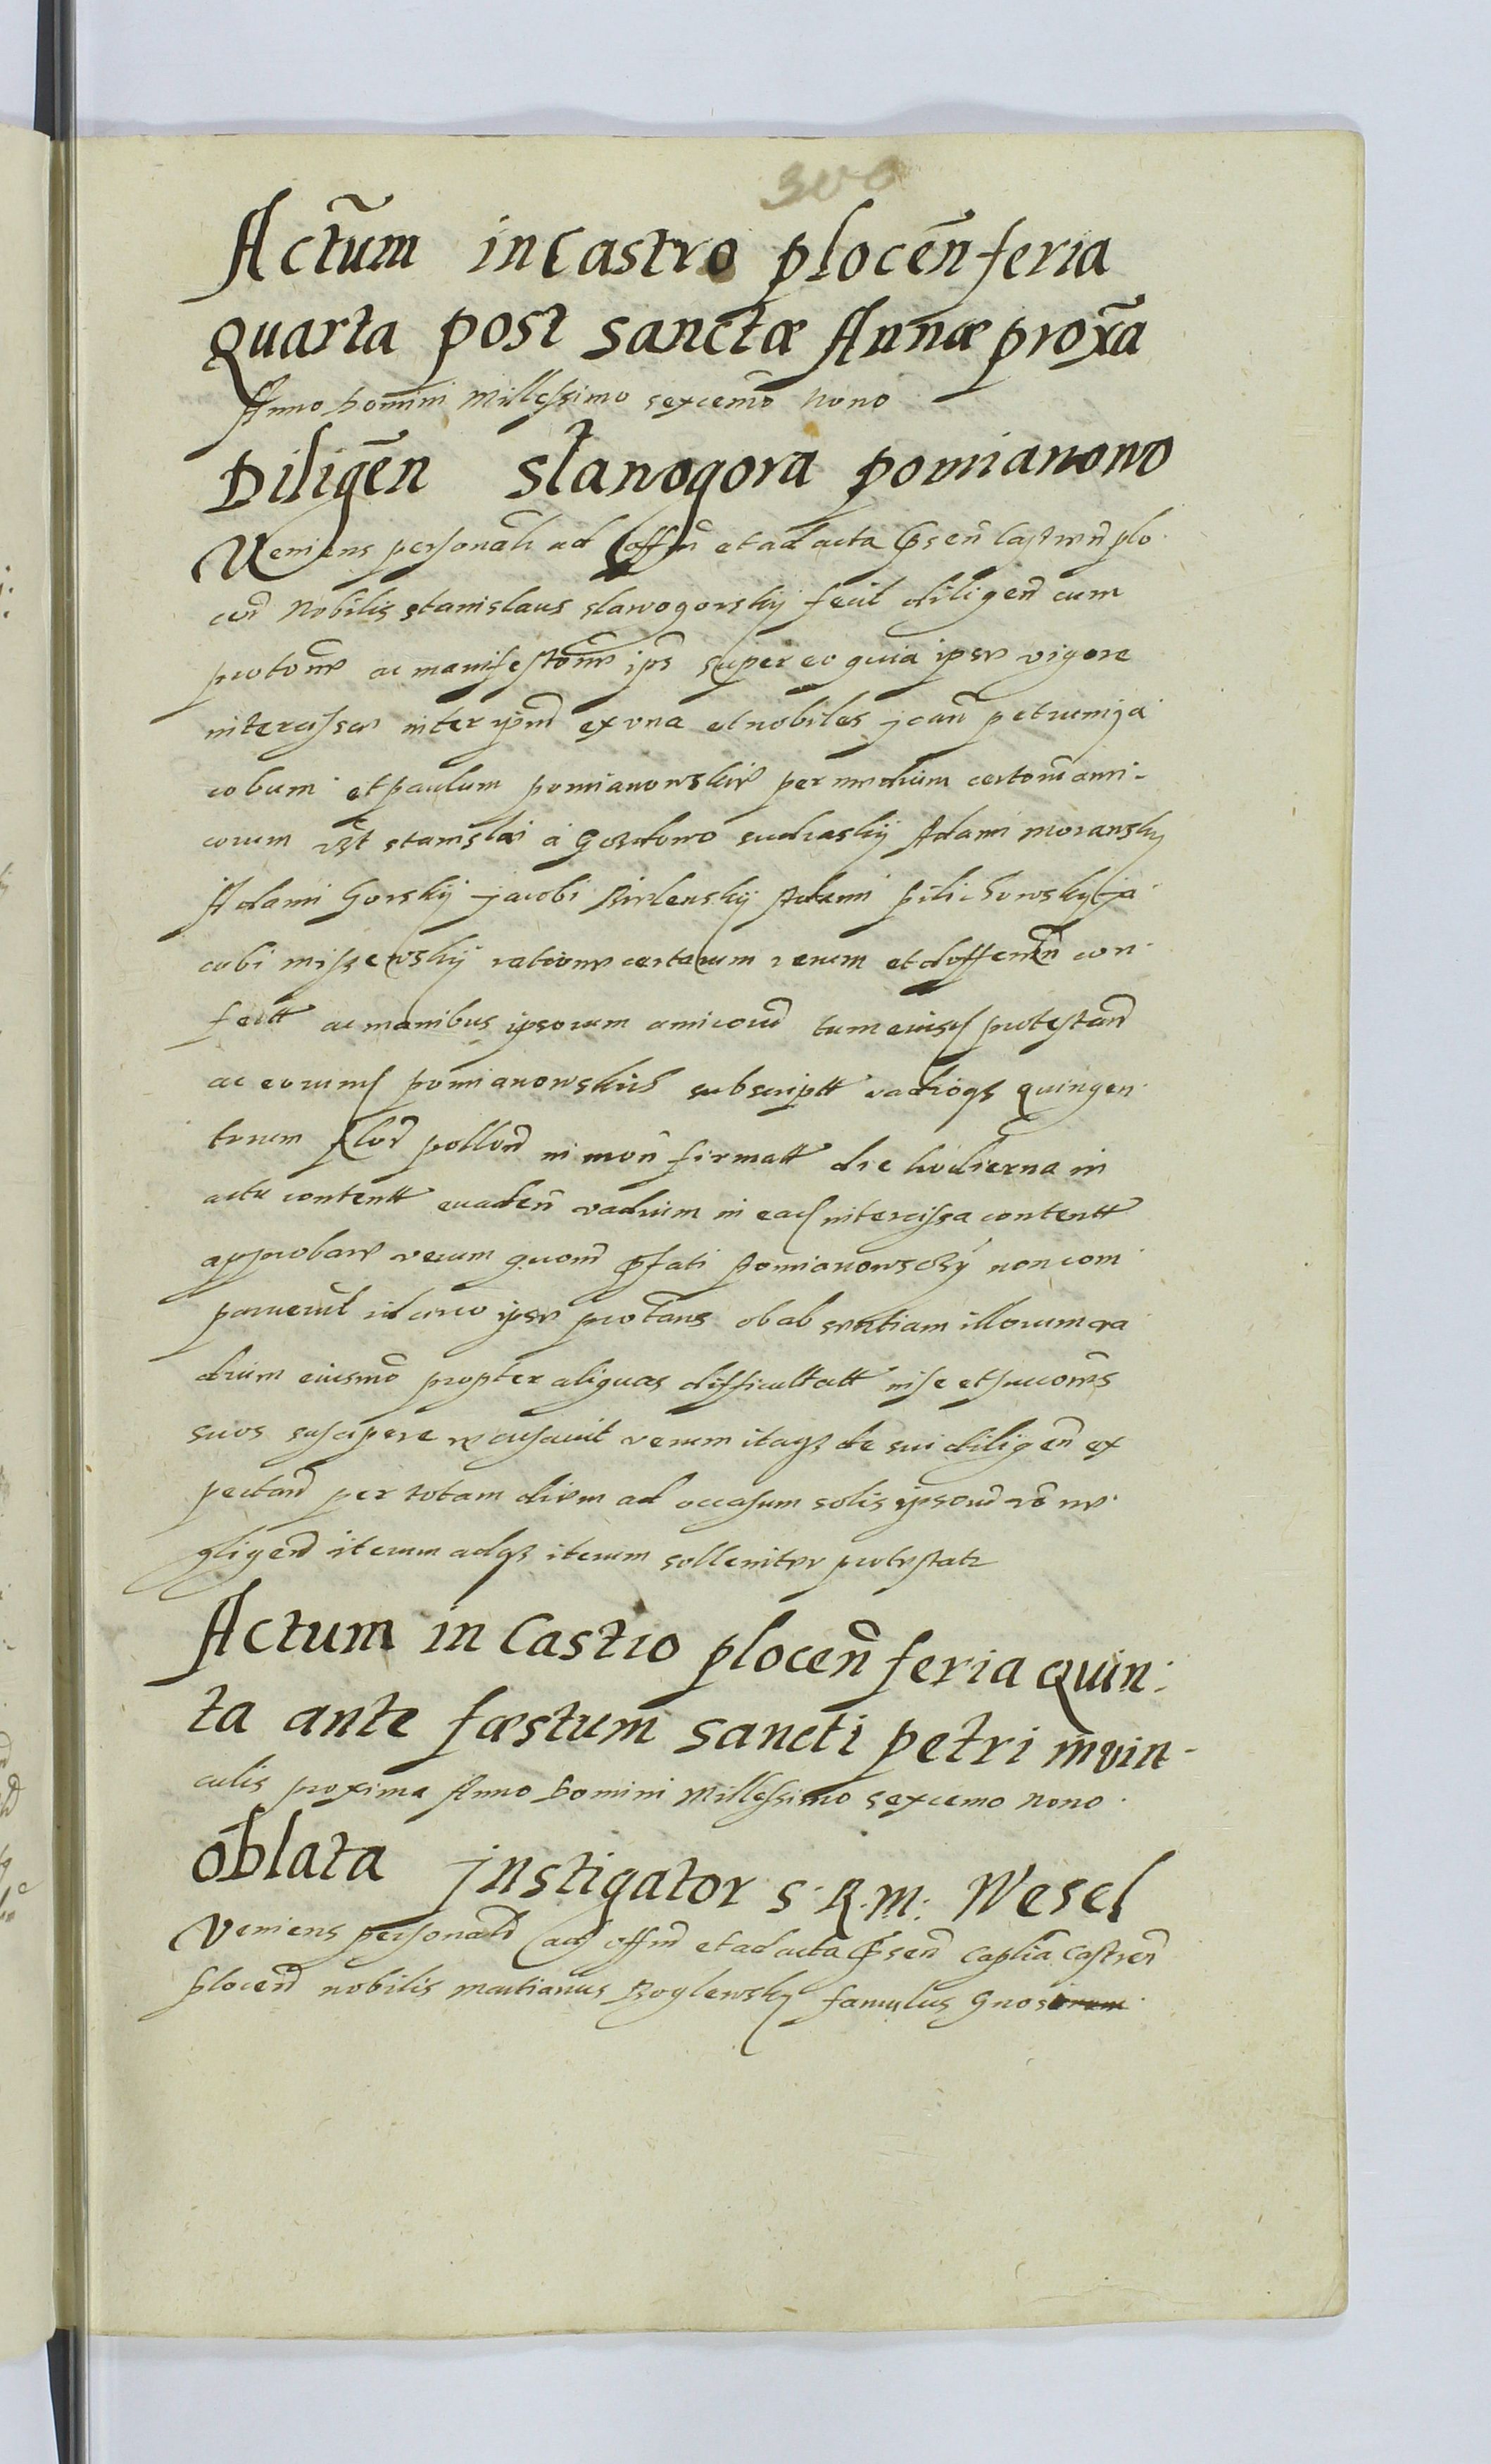 300
Actum in Castro plocen feria
quarta post sanctæ Annæ proxa
Anno Domini Millessimo sexcemo Nono
Diligen Slawogora pomianowo
Veniens personali ad offm et ad acta psen Castren plo
cen Nobilis Stanislaus slawogorskij fecit diligen cum
protone ac manifestone ips super eo quia ipse vigore
intercissæ inter ipm ex una et nobiles joan petrum ja
cobum et paulum pomianowskie per medium certorum ami-
corum vt stanislai a Gozdowo sudraskij Adami moransky
Adami Gorskij jacobi Adami pilichowsky ja
cobi miszewskij ratione certarum rerum et con
fectt ac manibus ipsorum amicorum tum eius protestan
ac eorum pomianowskich subscriptt vadioqz quingen
torum flor pollon in mon firmatt die hodierna in
actu contentt evaden vadium in ead intercissa contentt
approbare verum quom pfati pomianowsckÿ non com
paruerut idcirco ipse protans ob absentiam illorum va
dium eiusmo propter aliquas difficultatt in se et succoes
suos suscipere recusavit verum itaqz de sui diligen ex
pectan per totam diem ad occasum solis ipsorum vo ne
gligen iterum adqz iterum sollemniter protestatr
Actum in Castro plocen feria quin:
ta ante fæstum sancti petri invin-
culis proxima Anno Domini Millessimo sexcemo nono
oblata jnstigator S. R. M. Wesel
Veniens personali ad offm et ad acta psen Caplia Castren
plocen nobilis martianus Boglewsky famulus Gnosorum